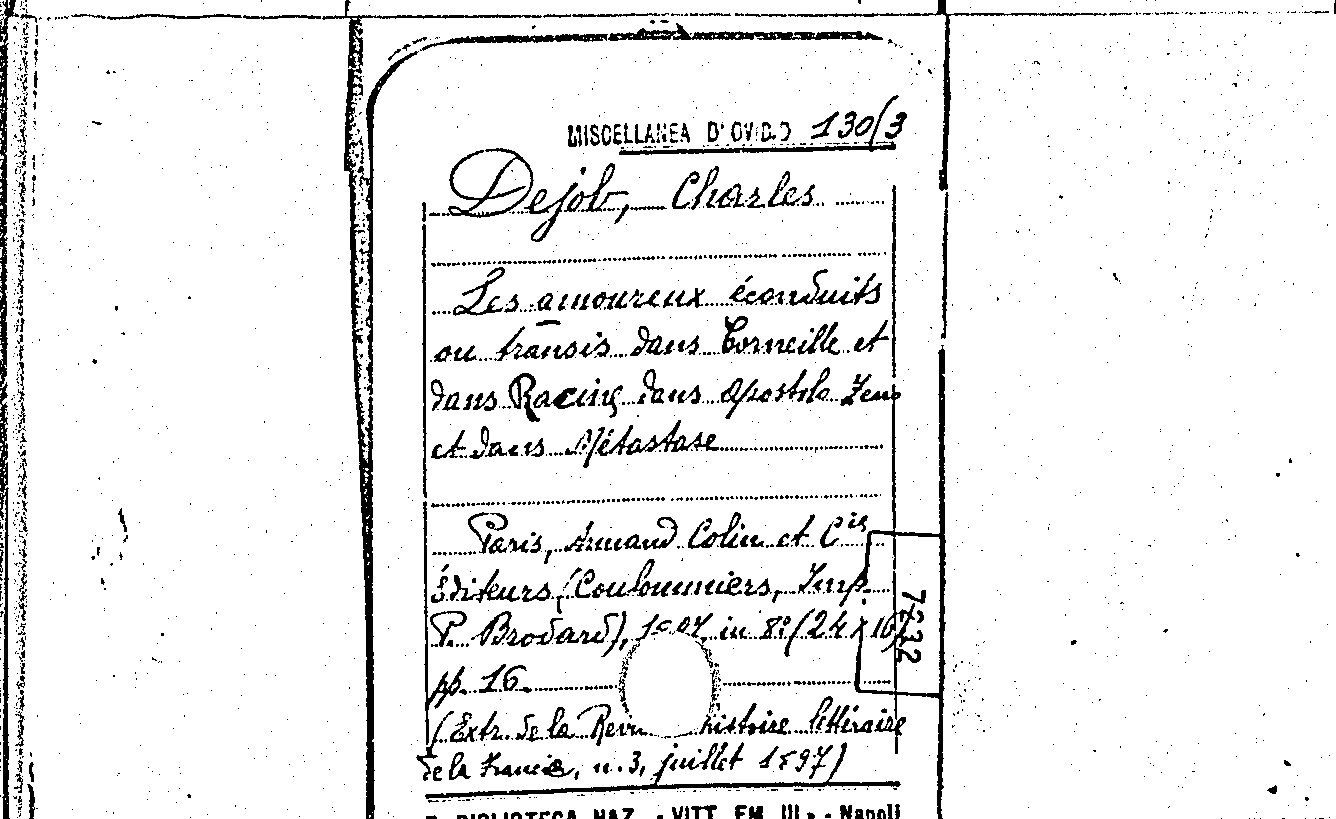 MISCELLANEA D'OVIDIO 130/3
Dejob, Charles
Les amoureux éconduits
ou transis dans Corneille et
dans Racine dans Apostolo Zeno
et dans Métastase
Paris, Armand Colin et Cie
Éditeurs, (Coulommiers, Imp.
P. Brodard), 1897, in 8º (24 x 16)
7632
pp. 16.
(Extr. de la histoire littéraire
de la France, n. 3, juillet 1897)
BIBLIOTECA NAZ. - VITT. EM. III - Napoli